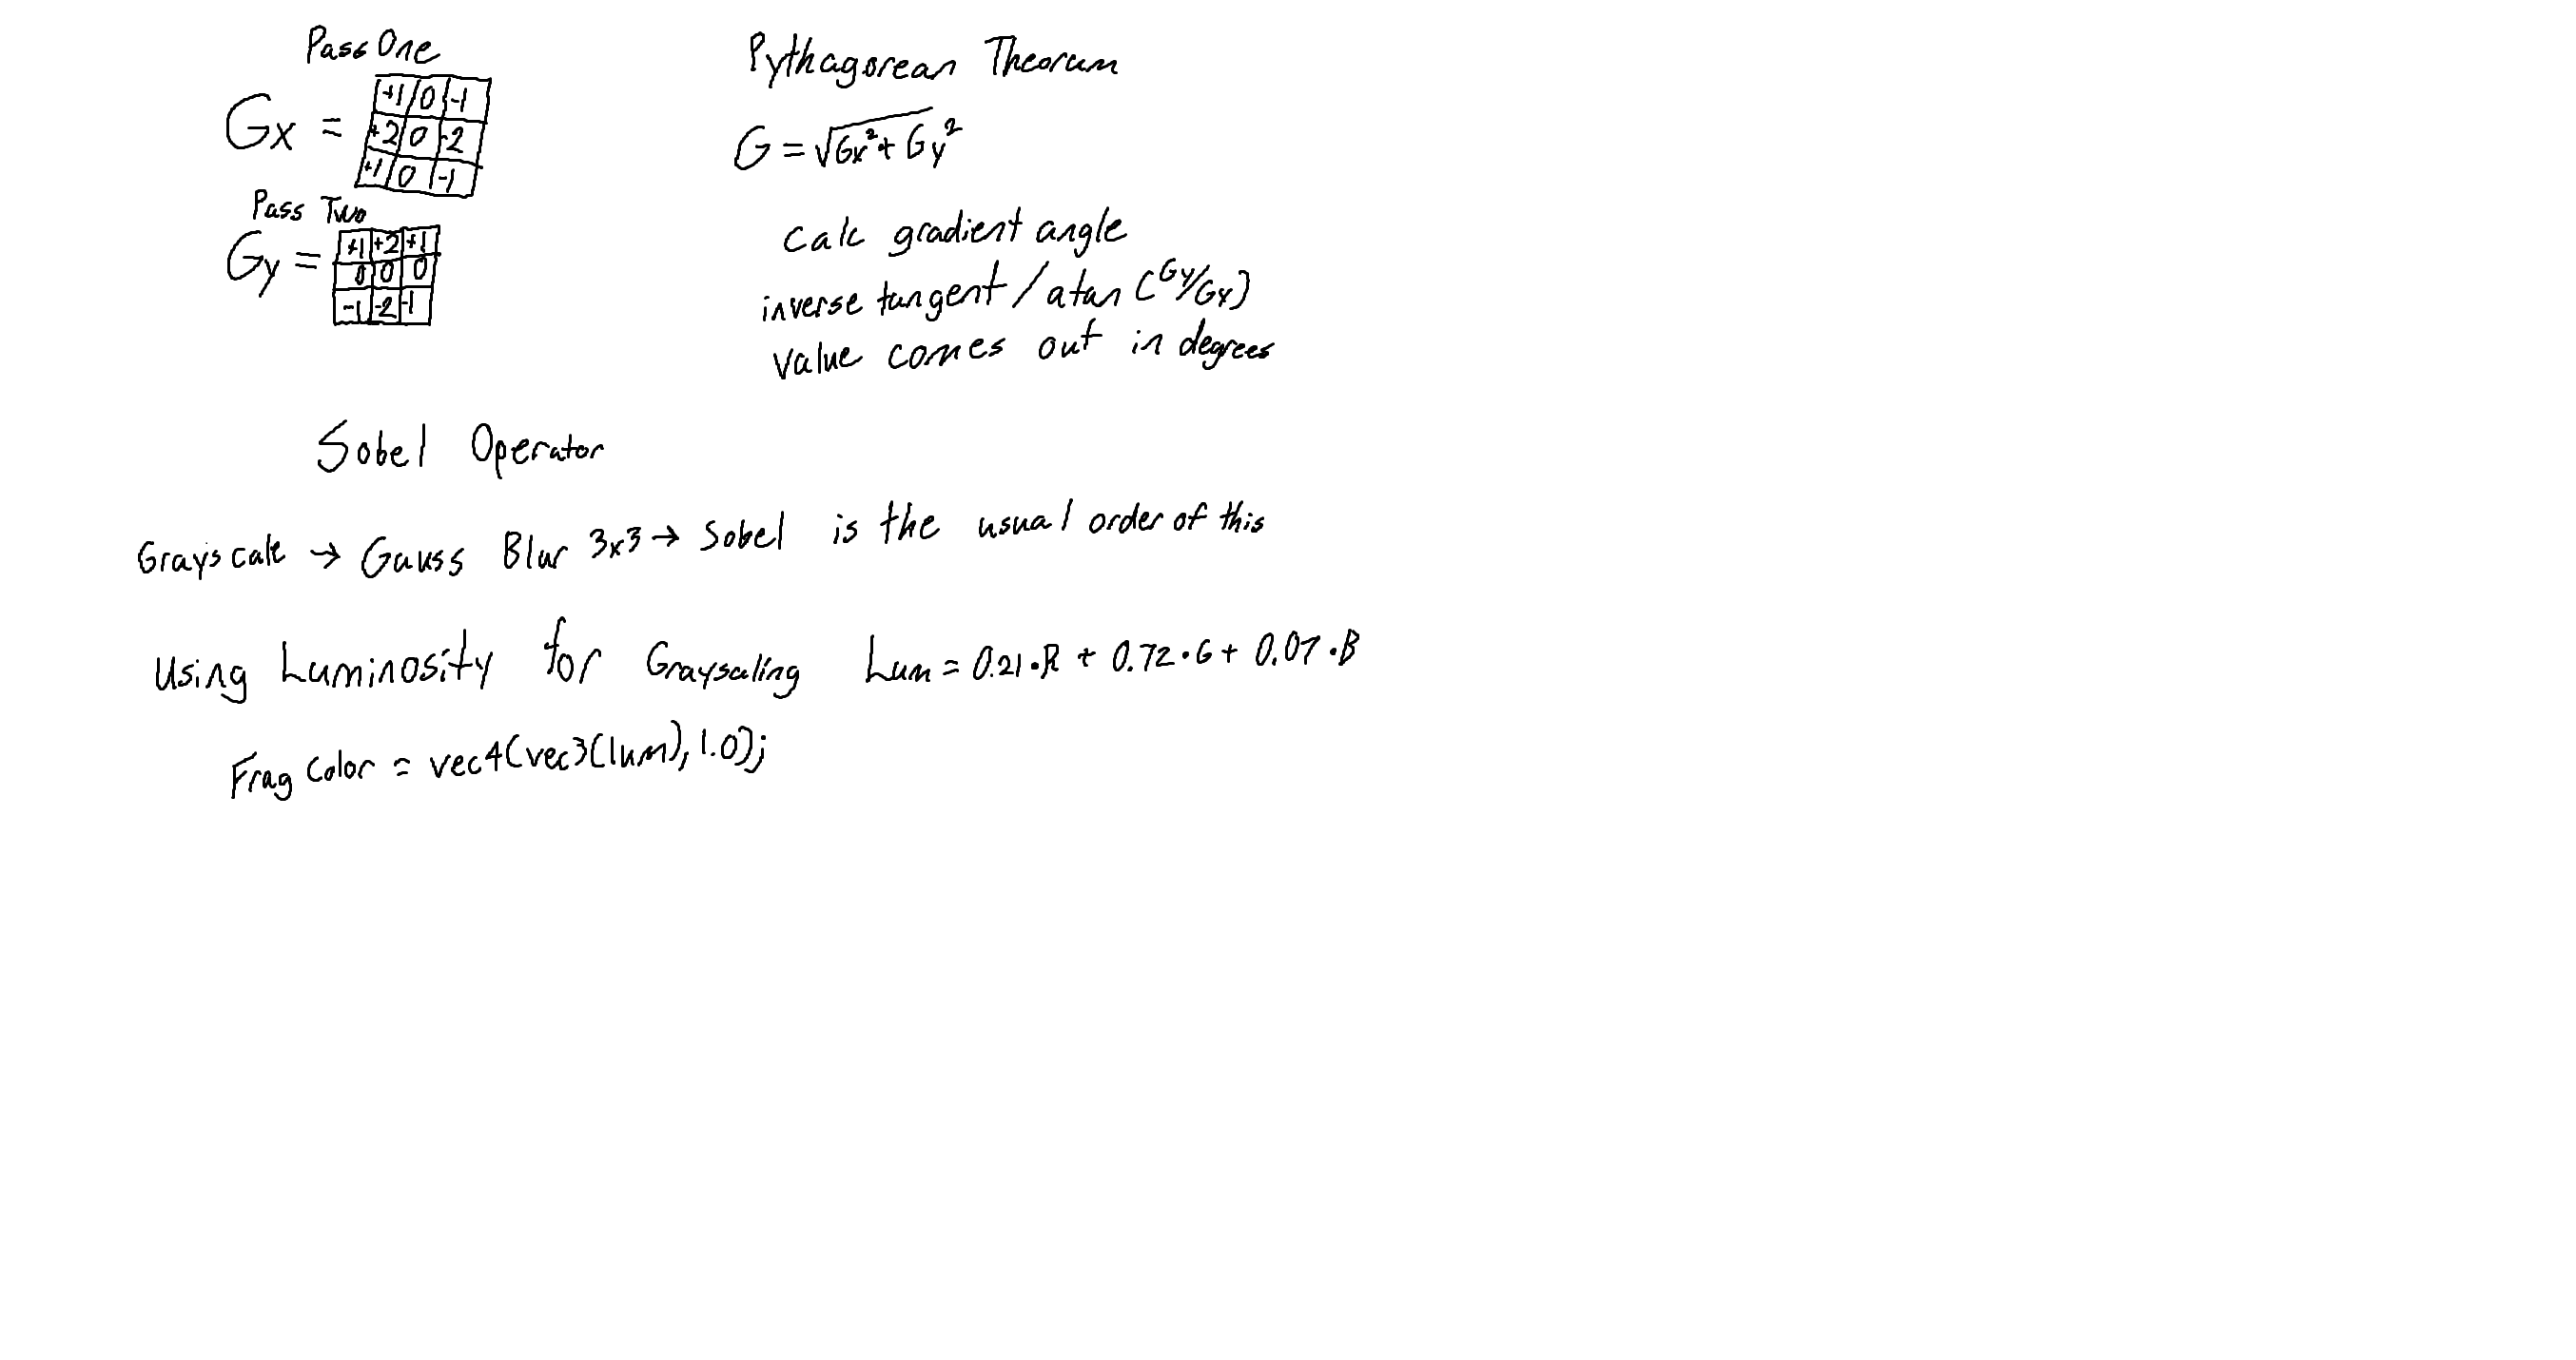 Pass One
Gx =
+1 0 -1
+2 0 -2
+1 0 -1
Pass Two
Gy =
+1 +2 +1
0 0 0
-1 -2 -1
Pythagorean Theorum
G = √Gx² + Gy²
Calc gradient angle
inverse tangent / atan (Gy/Gx)
Value comes out in degrees
Sobel Operator
Grayscale → Gauss Blur 3x3 → Sobel is the usual order of this
Using Luminosity for Graysaling Lum = 0.21·R + 0.72·G + 0.07·B
Frag Color = vec4(vec3(lum), 1.0);